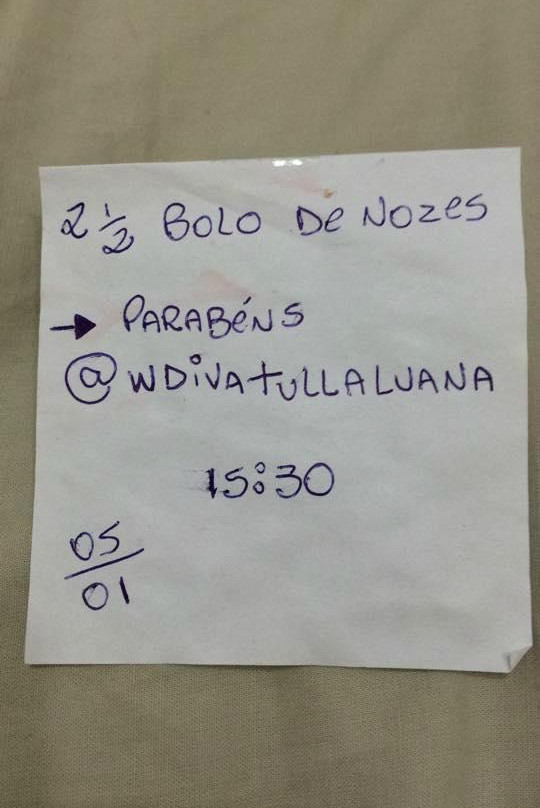 2 1/2 BOLO DE NOZES
→ PARABÉNS
@WDIVATULLALUANA
15:30
05/01